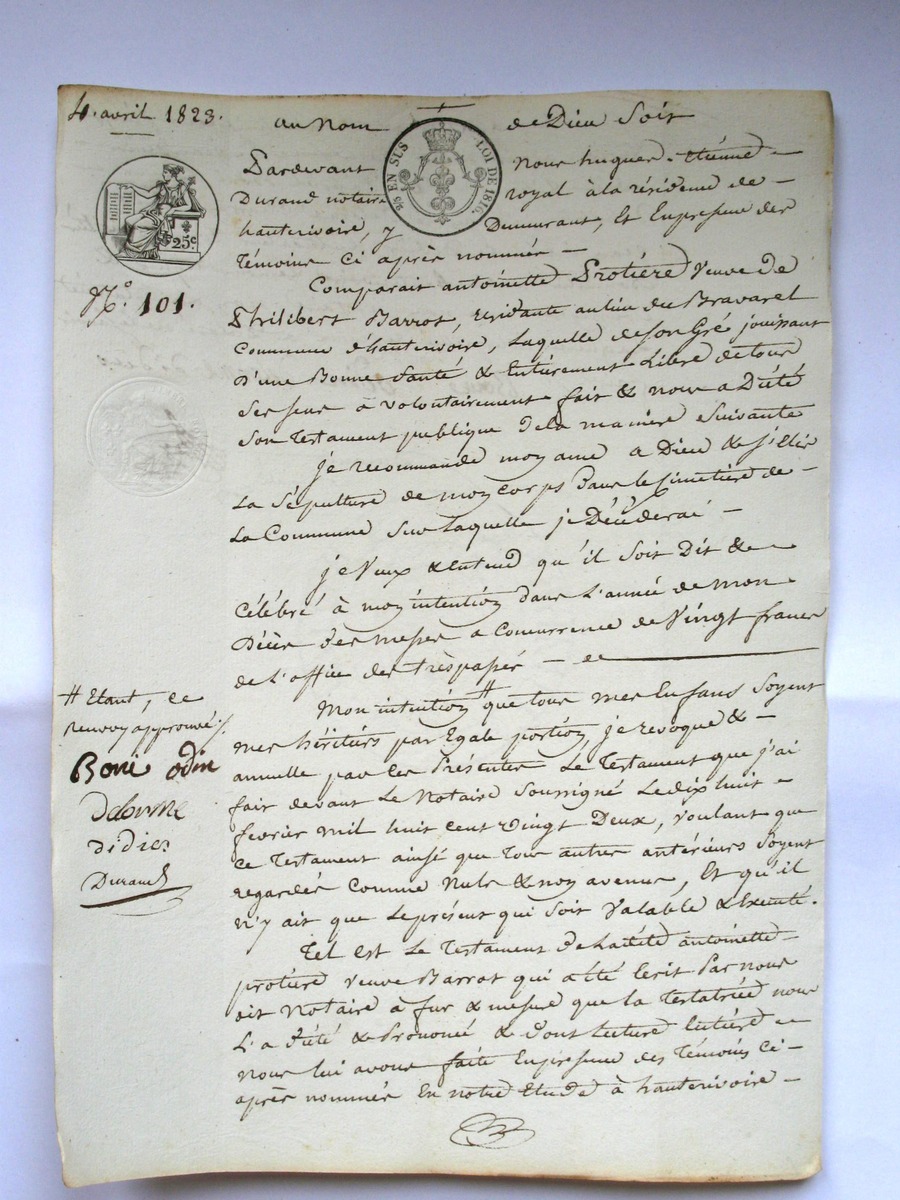 4. avril 1823.
au Nom de Dieu Soit
EN SUS LOI DE 1816.
25c.
Nº. 101.
Pardevant Nous hugues-Etienne
Durand notaire royal à la résidence de
hauterivoire, y Demeurant, Et En presence des
Témoins Ci après nommés
Comparait antoinette Protière Veuve de
Philibert Barrot, residante au lieu du Bravarel
Commune d'hauterivoire, Laquelle de son Gré jouissant
D'une Bonne Santé & Entièrement Libre de tous
Ses sens a volontairement fait & nous a Dicté
Son Testament publique de la maniere Suivante
je recommande mon ame a Dieu & j'Elis
La Sépulture de mon corps Dans le Cimetière de
La Commune Sur Laquelle je Décéderai
je Veux & Entend qu'il Soit Dit &
Célébré à mon intention dans L'année de mon
Décès des messes a Concurrence de Vingt francs
de L'office des trèspassés
Mon intention # que tous mes Enfans Soyent
mes héritiers par Egale portion je revoque &
annulle par ces Présentes Le Testament que j'ai
fait devant Le Notaire Soussigné Le dix huit
fevrier mil huit cent Vingt Deux, voulant que
Ce Testament ainsi que tous autres antérieurs Soyent
regardés Comme Nuls & non avenus, Et qu'il
n'y ait que Le présent qui Soit Valable & Executé.
Tel est Le Testament de Ladite antoinette
protière veuve Barrot qui a été Ecrit Par nous
dit Notaire à fur & mesure que la Testatrice nous
L'a Dicté & Prononcé & Dont Lecture Entière
Nous lui avons faite En presence des Témoins Ci
après nommés En notre Etude à hauterivoire
# Etant, ce
renvoy approuvé
Boni odin
Delorme
Didier
Durand